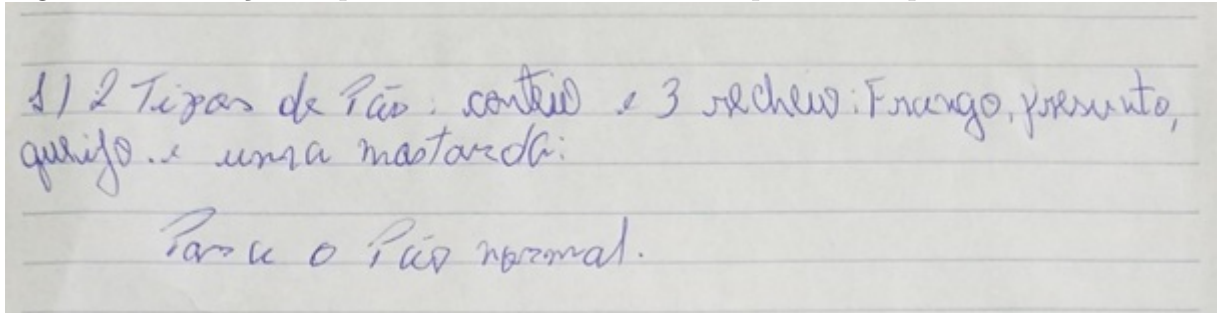 1) 2 Tipos de Pão: e 3 recheio: Frango, presunto,
queijo. e uma mostarda:
Para o Pão normal.